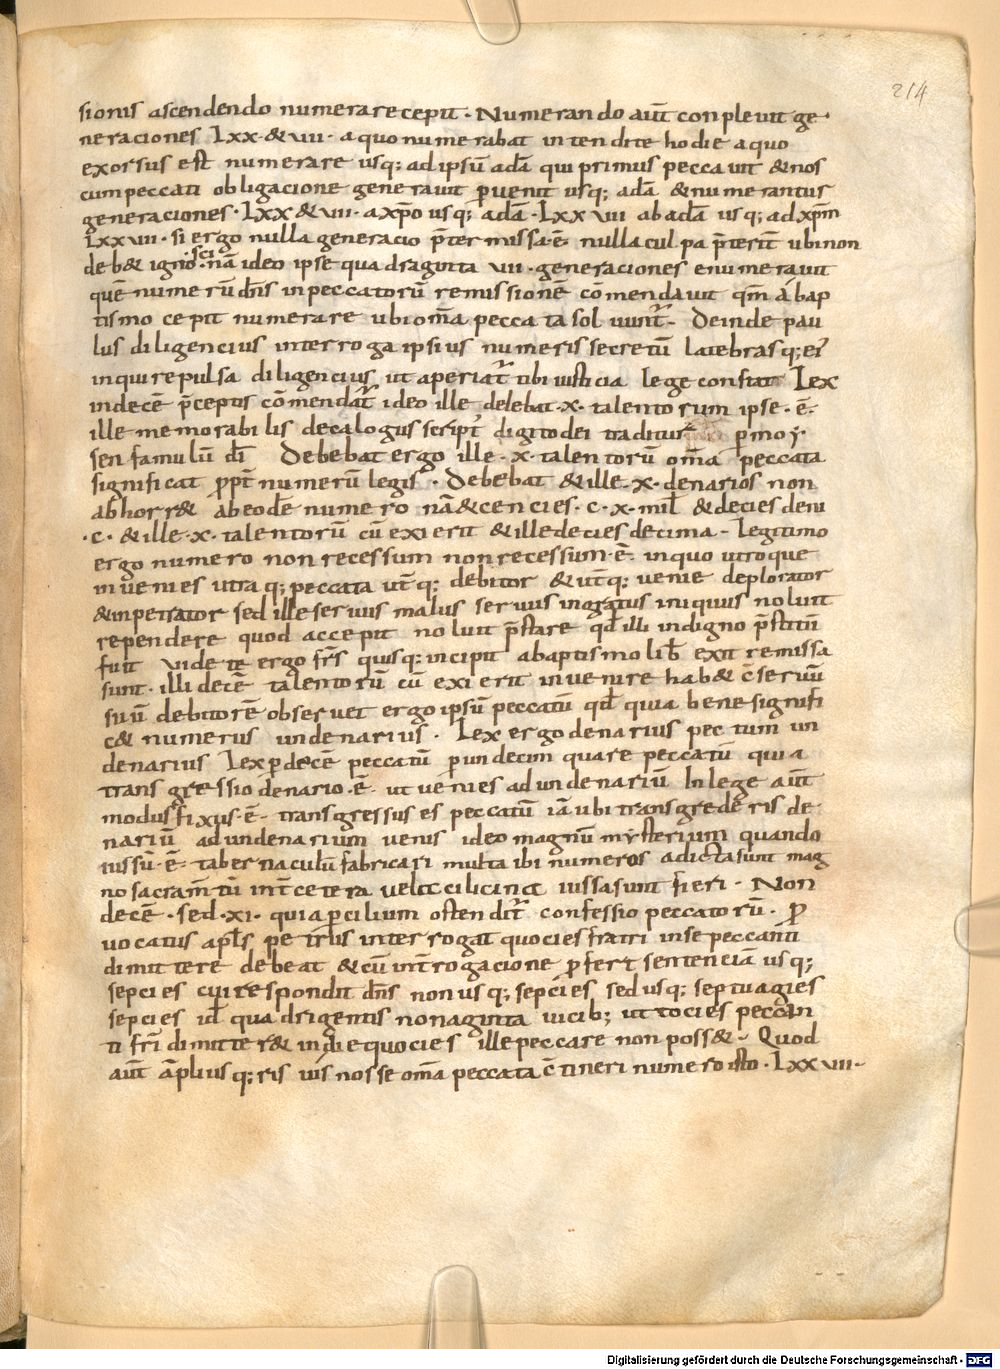 214
sionis ascendendo numerare cepit · Numerando aut̄ conpleuit ge
neraciones Lxx · & vııı · a quo numerabat intendite hodie a quo
exorsus est numerare usq; ad ipsū adā qui primus peccauit & nos
cum peccati obligacione generauit puenit usq; adā & numerantur
generaciones · Lxx & vıı · a xp̄o usq; adā · Lxx vııı ab adā usq; ad xp̄m
Lxx vııı · si ergo nulla generacio p̄ter missa · ē · nulla culpa p̄terit̄ ubi non
deb& ignosci · nā ideo ipse quadraginta vıı · generaciones enumerauit
quē numerū dn̄s in peccatorū remissionē cōmendauit qm̄ a bap
tismo cepit numerare ubi om̄a peccata soluunt̄ · Deinde pau
lus diligencius interroga ipsius numeris secretū latebrasq; ei'
inquire pulsa diligencius ut aperiat̄ tibi iusticia lege constat Lex
in decē p̄ceptis cōmendat̄ ideo ille debebat · x · talentorum ipse · ē ·
ille memorabilis decalogus script' digito dei traditur p moy
sen famulū dī Debebat ergo ille · x · talentorū om̄a peccata
significat ppt̄ numerū legis · Debebat & ille · x · denarios non
abhorr& ab eodē numero nā & cencies · c · x · mil̄ & decies deni
· c · & ille · x · talentorū cū exierit & ille decies decima · legitimo
ergo numero non recessum non recessum · ē · in quo utroque
inuenies utraq; peccata ut̄q; debitor & ut̄q; uenie deplorator
& inpetrator sed ille seruus malus seruus ingratus iniquus noluit
rependere quod accepit noluit p̄stare qd̄ illi indigno p̄stitū
fuit uidete ergo fr̄s quisq; incipit a baptismo lib̄ exit remissa
sunt · illi decē talentorū cū exierit inuenire hab& c̄seruū
suū debitorē obseruet ergo ipsū peccatū qd̄ quia bene signifi
c& numerus undenarius · Lex ergo denarius pectum un
denarius Lex p decē peccatū p undecim quare peccatū quia
transgressio denario · ē · ut uenies ad undenariū In lege aut̄
modus fixus · ē · transgressus es peccatū iā ubi transgrederis de
nariū ad undenarium uenis ideo magnū mysterium quando
iussū · ē · tabernaculū fabricari multa ibi numeros adicta sunt mag
no sacram̄tū int̄ cetera uela cilicina iussa sunt fieri · Non
decē · sed · xı · quia p cilium ostendit̄ confessio peccatorū · p
uocatus apl̄s petrus interrogat quocies fratri in se peccanti
dimittere debeat & cū int̄rogacione pfert sentenciā usq;
sepcies cui respondit dn̄s non usq; sepcies sed usq; septuagies
sepcies id̄ quadrigentis nonaginta uicib; ut tocies peccan
ti fr̄i dimitter& in die quocies ille peccare non poss& · Quod
aut̄ āplius q;ris uis nosse om̄a peccata c̄tineri numero isto · Lxx vıı ·
Digitalisierung gefördert durch die Deutsche Forschungsgemeinschaft - DFG